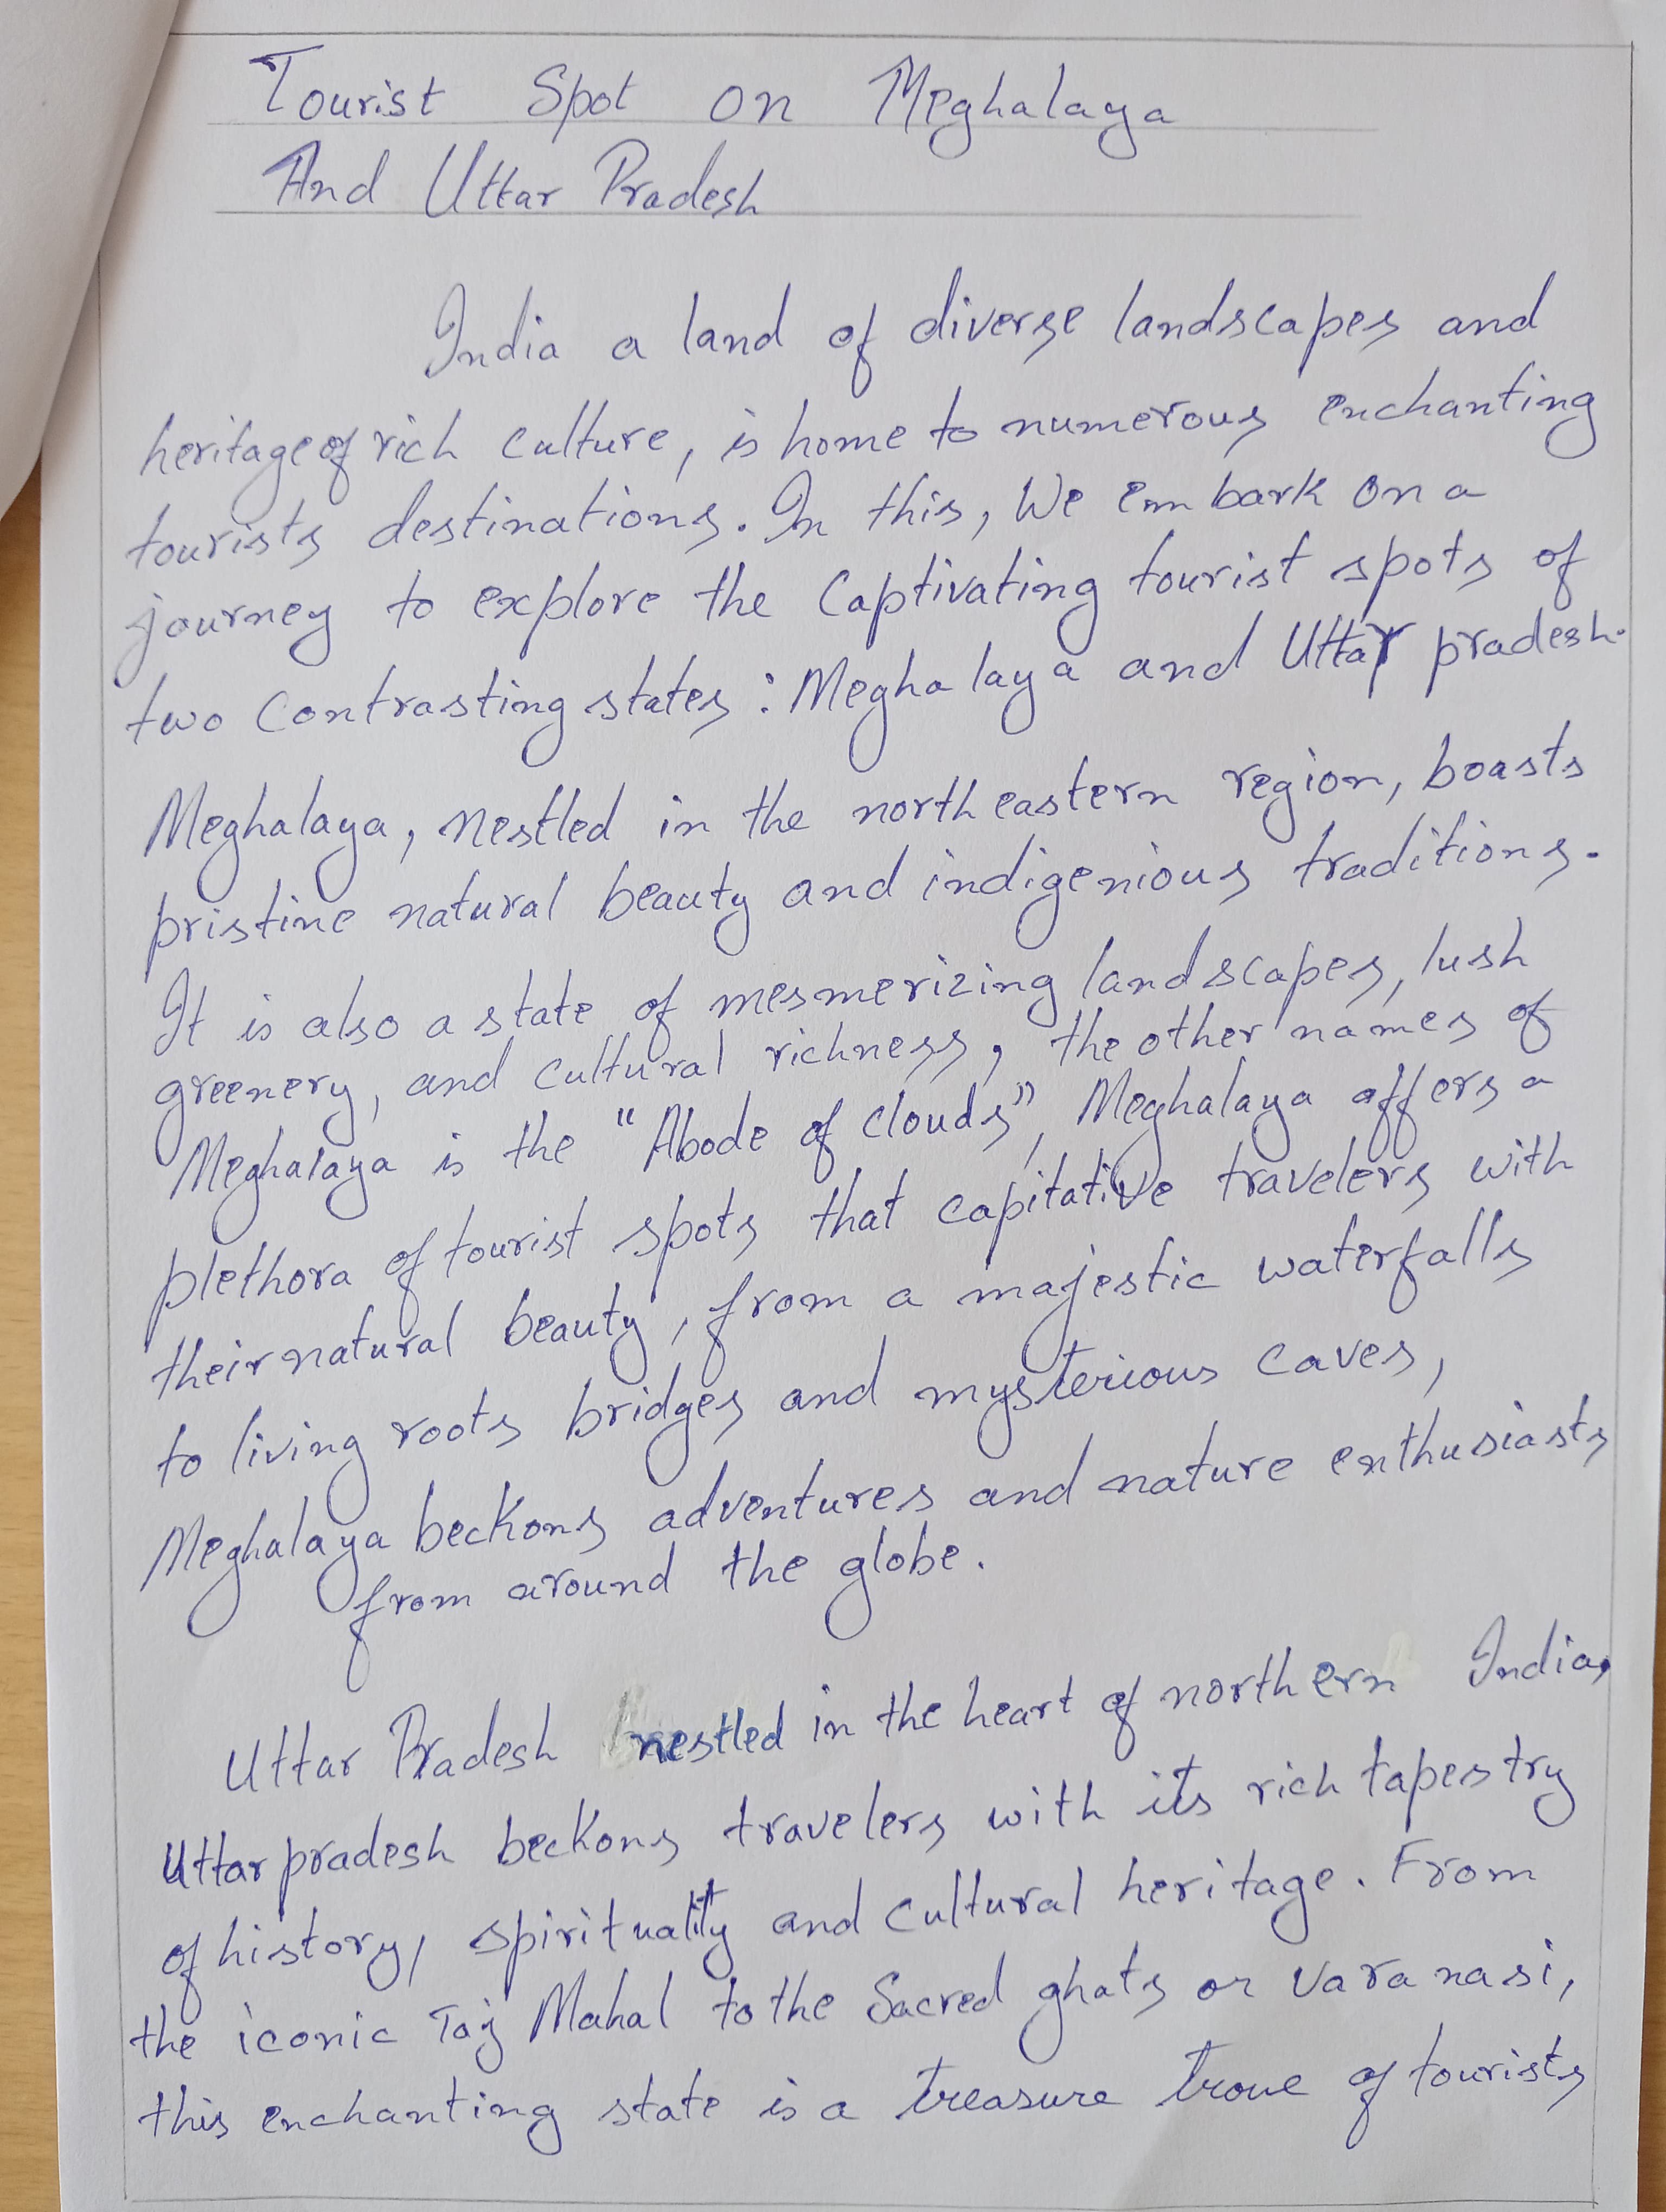 Tourist Spot on Meghalaya
And Uttar Pradesh
India a land of diverse landscapes and
heritage of rich culture, is home to numerous enchanting
tourists destinations. In this, We embark on a
journey to explore the Captivating tourist spots of
two Contrasting states : Meghalaya and Uttar pradesh.
Meghalaya, nestled in the north eastern region, boasts
pristine natural beauty and indigenious traditions.
It is also a state of mesmerizing landscapes, lush
greenery, and cultural richness, the other names of
Meghalaya is the "Abode of clouds", Meghalaya offers a
plethora of tourist spots that capitative travelers with
their natural beauty, from a majestic waterfalls
to living roots bridges and mysterious caves,
Meghalaya beckons adventures and nature enthusiasts
from around the globe.
Uttar Pradesh nestled in the heart of northern India,
Uttar pradesh beckons travelers with its rich tapestry
of history, spirituality and cultural heritage. From
the iconic Taj Mahal to the Sacred ghats or Varanasi,
this enchanting state is a treasure trove of tourists